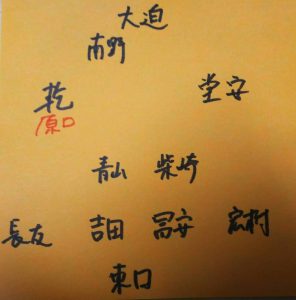 大迫
南野
乾 堂安
原口
青山 柴崎
長友 吉田 冨安 宏樹
東口